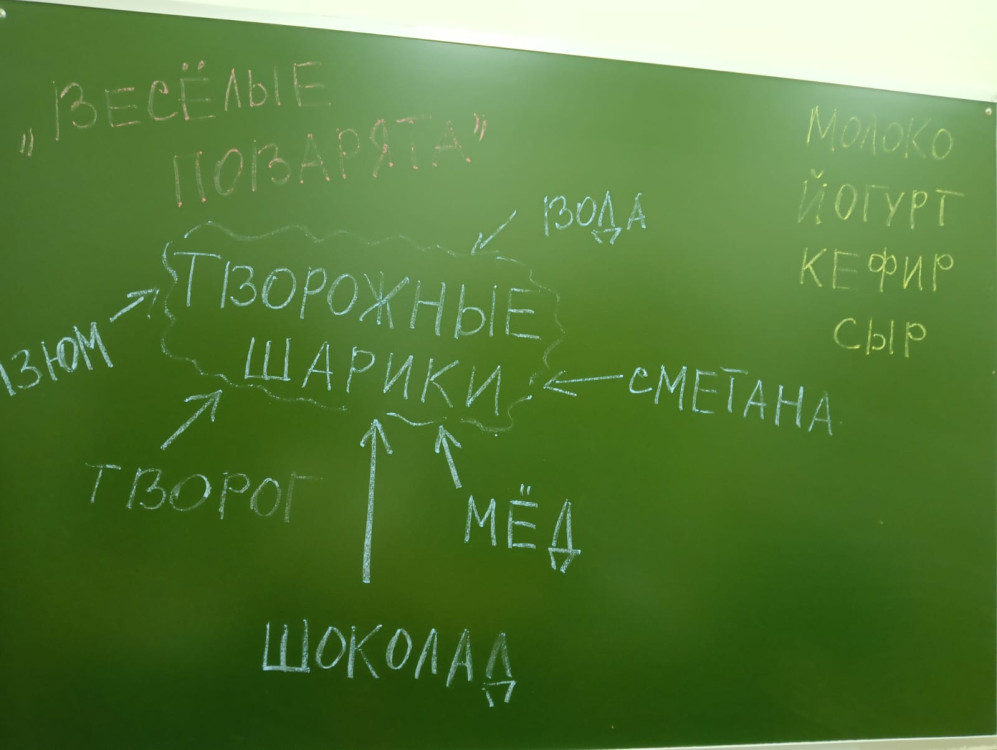 „ВЕСЁЛЫЕ
ПОВАРЯТА"
МОЛОКО
ЙОГУРТ
КЕФИР
СЫР
ВОДА
ТВОРОЖНЫЕ
ШАРИКИ
ИЗЮМ
СМЕТАНА
ТВОРОГ
МЁД
ШОКОЛАД